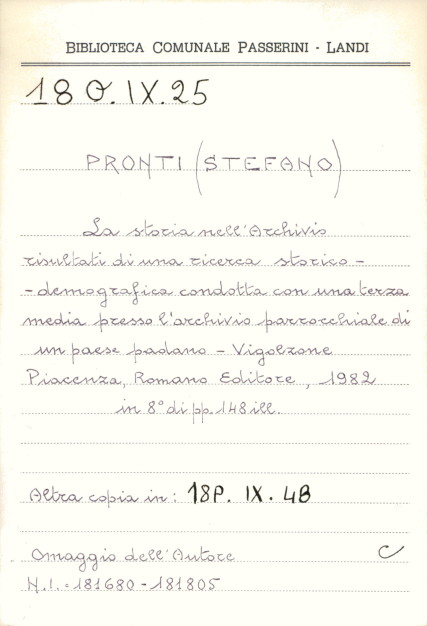 BIBLIOTECA COMUNALE PASSERINI - LANDI
18 O. IX. 25
PRONTI (STEFANO)
La storia nell'Archivio
risultati di una ricerca storico -
- demografica condotta con una terza
media presso l'archivio parrocchiale di
un paese padano - Vigolzone
Piacenza, Romano Editore, 1982
in 8° di pp. 148 ill.
Altra copia in: 18P. IX. 48
Omaggio dell'Autore C
N.I. = 181680 - 181805